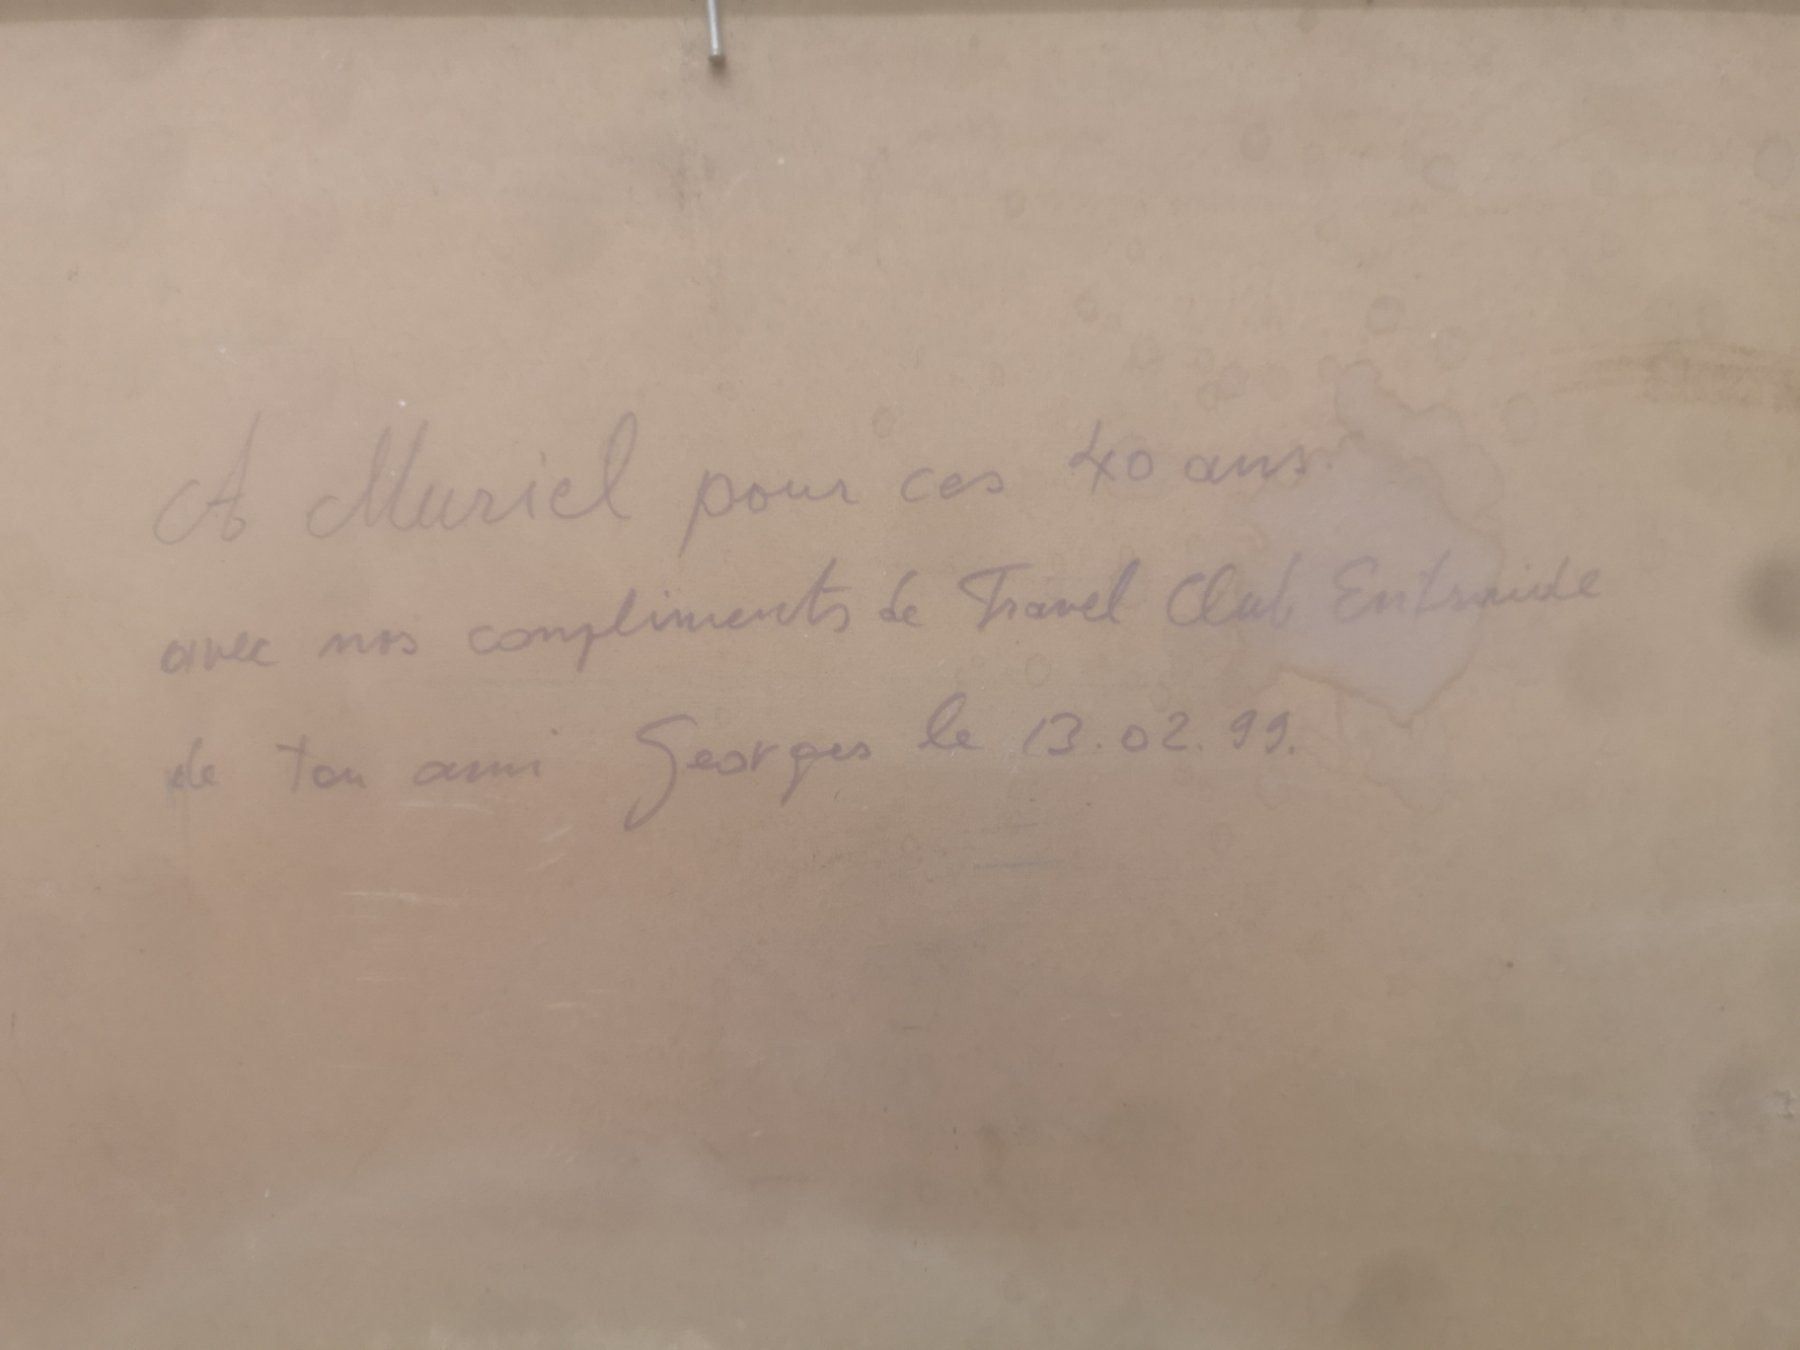 A Muriel pour ces 40 ans.
avec nos compliments de Travel Club Entraide
de ton ami Georges le 13.02.99.